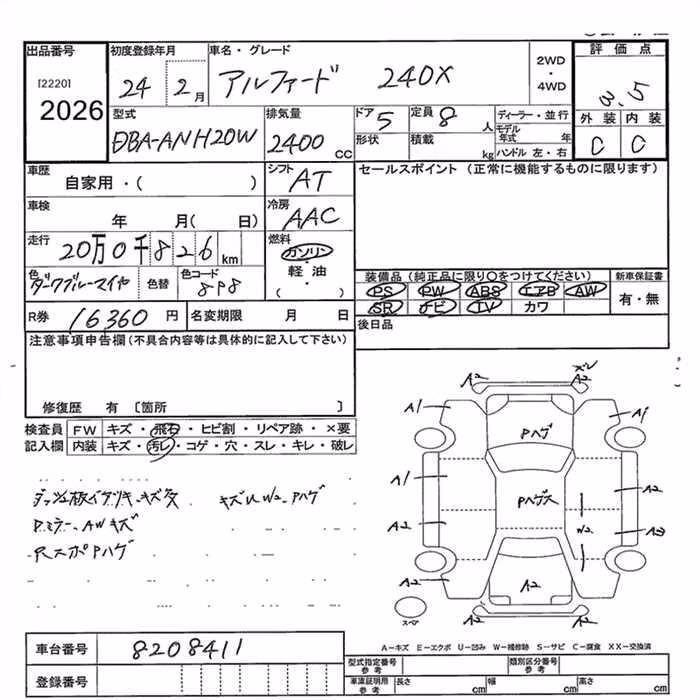 出品番号 初度登録年月 車名・グレード 2WD・4WD 評価点
[2220] 2026 24 2月 アルファード 240X 3.5
型式 排気量 ドア 5 定員 8人 ディーラー・並行 外装 内装
DBA-ANH20W 2400cc 形状 積載 kg モデル年式 年 C C
ハンドル 左・右
車歴 自家用・( ) シフト AT セールスポイント (正常に機能するものに限ります)
車検 年 月( 日) 冷房 AAC
走行 20万0千826km 燃料 ガソリン・軽油・( )
色 ダークブルーマイカ 色替 色コード 8P8
装備品(純正品に限り○をつけてください) 新車保証書
PS PW ABS エアB AW 有・無
SR ナビ TV カワ
R券 16360円 名変期限 月 日 後日品
注意事項申告欄(不具合内容等は具体的に記入して下さい)
修復歴 有 [箇所 ]
検査員記入欄 FW キズ・飛石・ヒビ割・リペア跡・×要
内装 キズ・汚レ・コゲ・穴・スレ・キレ・破レ
キズU W2、Pハゲ
ミラー、AWキズ
RスポPハゲ
A2 ズレ A2
A1 A1
Pハゲ
A1 Pハゲ大 A2
A2 W2 A2
A2 A2 A2
スペア
A-キズ E-エクボ U-凹み W-補修跡 S-サビ C-腐食 XX-交換済
車台番号 8208411
登録番号
型式指定番号 参考 類別区分番号 参考
車庫証明用 参考 長さ cm 幅 cm 高さ cm